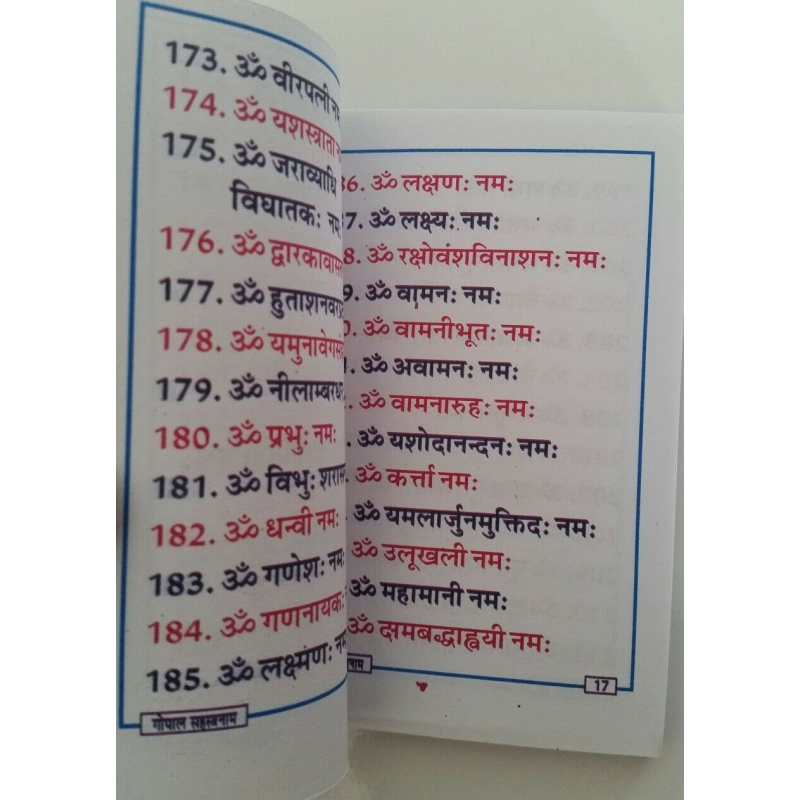 173. ॐ वीरपत्नी नमः
174. ॐ यशस्त्राता
175. ॐ जराव्याधि
विघातकः नमः
176. ॐ द्वारकावास
177. ॐ हुताशनवर
178. ॐ यमुनावेग
179. ॐ नीलाम्बरधर
180. ॐ प्रभुः नमः
181. ॐ विभुः शरास
182. ॐ धन्वी नमः
183. ॐ गणेशः नमः
184. ॐ गणनायकः
185. ॐ लक्ष्मणः नमः
गोपाल सहस्त्रनाम
36. ॐ लक्षणः नमः
37. ॐ लक्ष्यः नमः
8. ॐ रक्षोवंशविनाशनः नमः
9. ॐ वामनः नमः
0. ॐ वामनीभूतः नमः
. ॐ अवामनः नमः
. ॐ वामनारुहः नमः
. ॐ यशोदानन्दनः नमः
ॐ कर्त्ता नमः
. ॐ यमलार्जुनमुक्तिदः नमः
ॐ उलूखली नमः
ॐ महामानी नमः
ॐ क्षमबद्धाह्वयी नमः
नाम
17